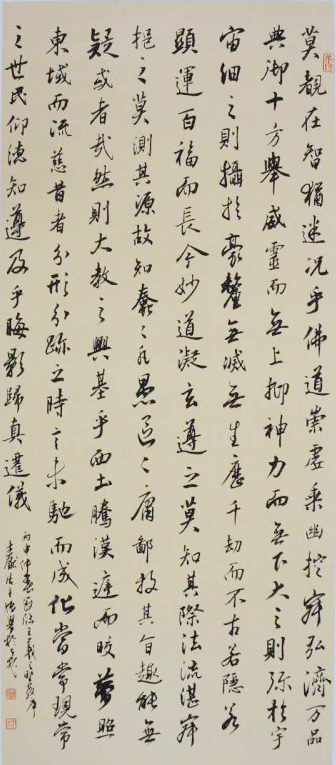 莫觀在智猶迷況乎佛道崇虛乘幽控寂弘濟万品
典御十方舉威靈而無上抑神力而無下大之則弥於宇
宙細之則攝於豪釐無滅無生歷千劫而不古若隱若
顯運百福而長今妙道凝玄遵之莫知其際法流湛寂
挹之莫測其源故知蠢々凡愚區々庸鄙投其旨趣能無
疑或者哉然則大教之興基乎西土騰漢庭而皎夢照
東域而流慈昔者分形分跡之時言未馳而成化當常現常
之世民仰德知遵及乎晦影歸真遷儀
丙申仲春